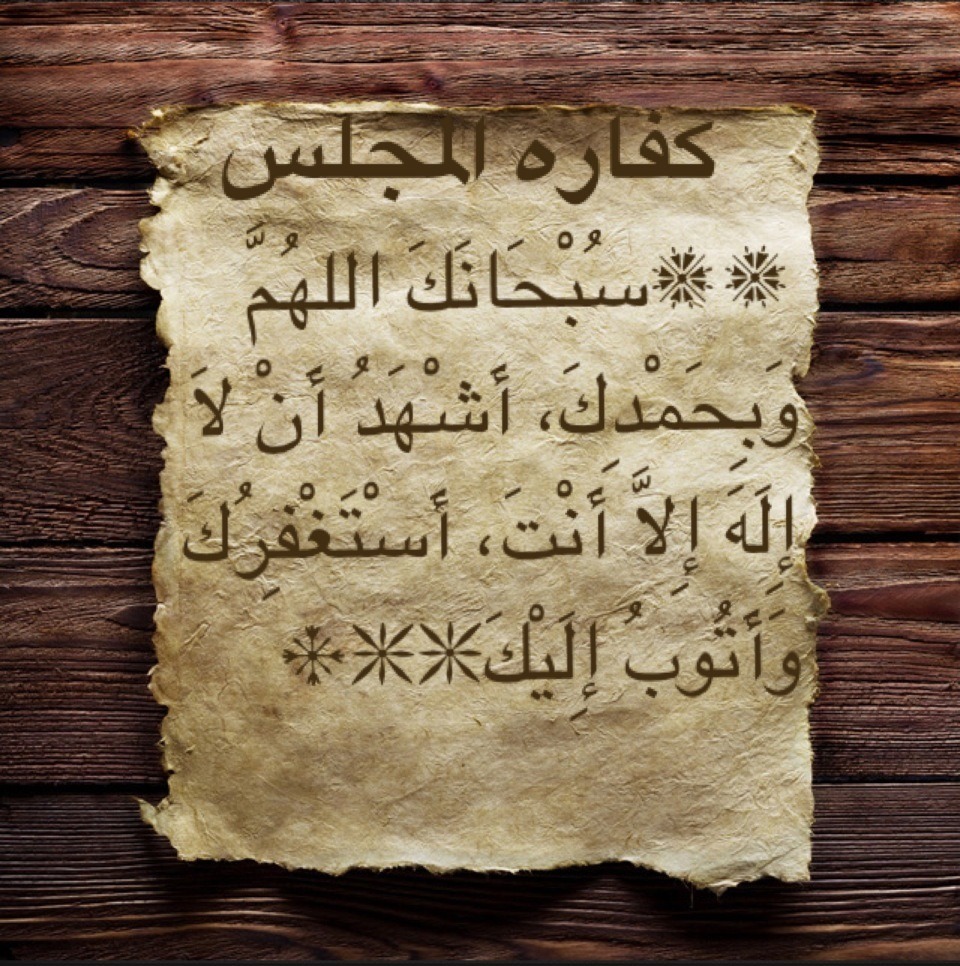 كفاره المجلس
سُبْحَانَكَ اللهُمَّ
وَبِحَمْدكَ، أَشْهَدُ أَنْ لاَ
إِلَهَ إِلاَّ أَنْتَ، أَستَْغْفِرُكَ
وَأَتُوبُ إِلَيْكَ